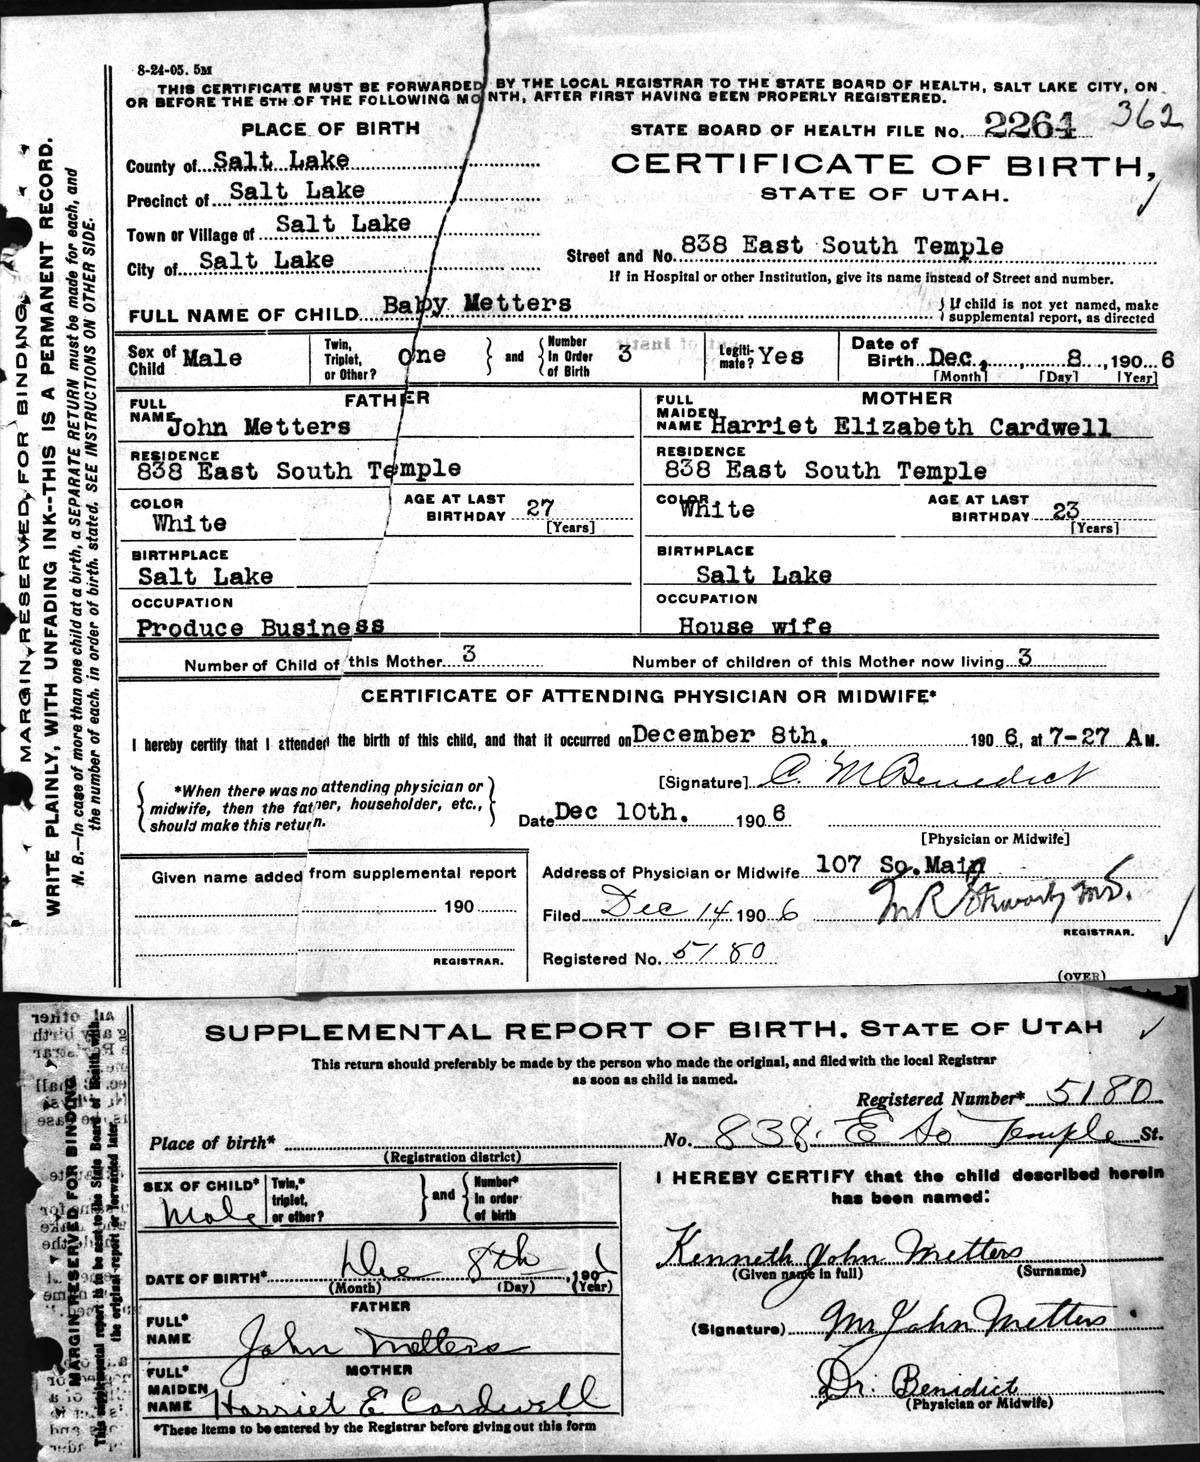 8-24-05. 5M
THIS CERTIFICATE MUST BE FORWARDED BY THE LOCAL REGISTRAR TO THE STATE BOARD OF HEALTH, SALT LAKE CITY, ON
OR BEFORE THE 5TH OF THE FOLLOWING MONTH, AFTER FIRST HAVING BEEN PROPERLY REGISTERED.
362
PLACE OF BIRTH
STATE BOARD OF HEALTH FILE No. 2264
County of Salt Lake
CERTIFICATE OF BIRTH,
STATE OF UTAH.
Precinct of Salt Lake
Town or Village of Salt Lake
City of Salt Lake
Street and No. 838 East South Temple
If in Hospital or other Institution, give its name instead of Street and number.
FULL NAME OF CHILD Baby Metters
{If child is not yet named, make
supplemental report, as directed
Sex of Child Male
Twin, Triplet, or Other? One
and
Number In Order of Birth 3
Legiti-mate? Yes
Date of Birth Dec, 8, 1906
[Month] [Day] [Year]
FATHER
FULL NAME John Metters
RESIDENCE
838 East South Temple
COLOR
White
AGE AT LAST BIRTHDAY 27
[Years]
BIRTHPLACE
Salt Lake
OCCUPATION
Produce Business
MOTHER
FULL MAIDEN NAME Harriet Elizabeth Cardwell
RESIDENCE
838 East South Temple
COLOR
White
AGE AT LAST BIRTHDAY 23
[Years]
BIRTHPLACE
Salt Lake
OCCUPATION
House wife
Number of Child of this Mother 3 Number of children of this Mother now living 3
CERTIFICATE OF ATTENDING PHYSICIAN OR MIDWIFE*
I hereby certify that I attended the birth of this child, and that it occurred on December 8th. 1906, at 7-27 A M.
*When there was no attending physician or
midwife, then the father, householder, etc.,
should make this return.
[Signature] C. M Benedict
Date Dec 10th. 1906
[Physician or Midwife]
Given name added from supplemental report
190
REGISTRAR.
Address of Physician or Midwife 107 So.Main
Filed Dec 14 1906
REGISTRAR.
Registered No. 5180
(OVER)
MARGIN RESERVED FOR BINDING
WRITE PLAINLY, WITH UNFADING INK--THIS IS A PERMANENT RECORD.
N. B.—In case of more than one child at a birth, a SEPARATE RETURN must be made for each, and
the number of each, in order of birth, stated. SEE INSTRUCTIONS ON OTHER SIDE.
SUPPLEMENTAL REPORT OF BIRTH. STATE OF UTAH
This return should preferably be made by the person who made the original, and filed with the local Registrar
as soon as child is named.
Registered Number* 5180
Place of birth* No. 838. E So Temple St.
(Registration district)
SEX OF CHILD*
Male
Twin,* triplet, or other?
and
Number* In order of birth
DATE OF BIRTH* Dec 8th, 190
(Month) (Day) (Year)
FATHER
FULL* NAME John Metters
MOTHER
FULL* MAIDEN NAME Harriet E Cardwell
*These items to be entered by the Registrar before giving out this form
I HEREBY CERTIFY that the child described herein
has been named:
Kenneth John Metters
(Given name in full) (Surname)
(Signature) Mr John Metters
Dr. Benidict
(Physician or Midwife)
MARGIN RESERVED FOR BINDING
This supplemental report is to be sent to the State Board of Health with
the original report or forwarded later.